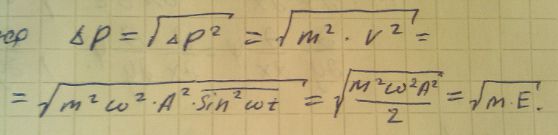 ΔP = √ΔP² = √m² · v² =
= √m² ω² · A² · sin² ωt = √m² ω² A² / 2 = √m · E .